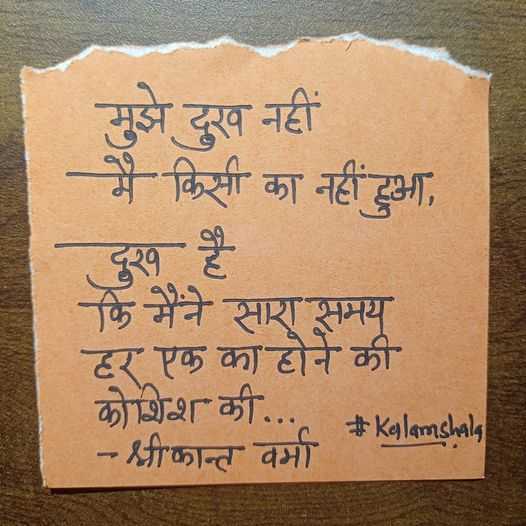 मुझे दुख नहीं
मै किसी का नहीं हुआ,
दुख है
कि मैंने सारा समय
हर एक का होने की
कोशिश की...
- श्रीकान्त वर्मा
# Kalamshala